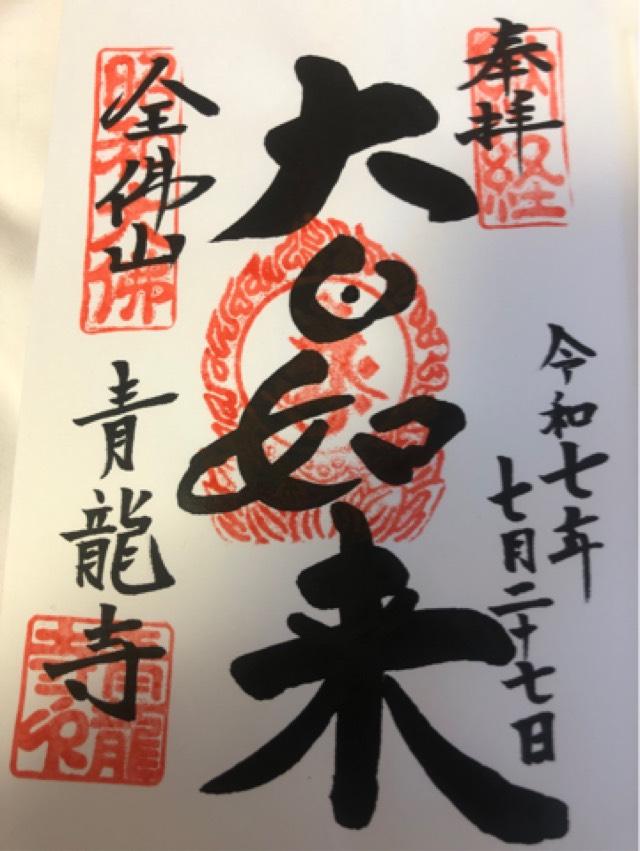 奉拝
献経
令和七年
七月二十七日
大日如来
全佛山
昭和大佛
青龍寺
青龍寺印